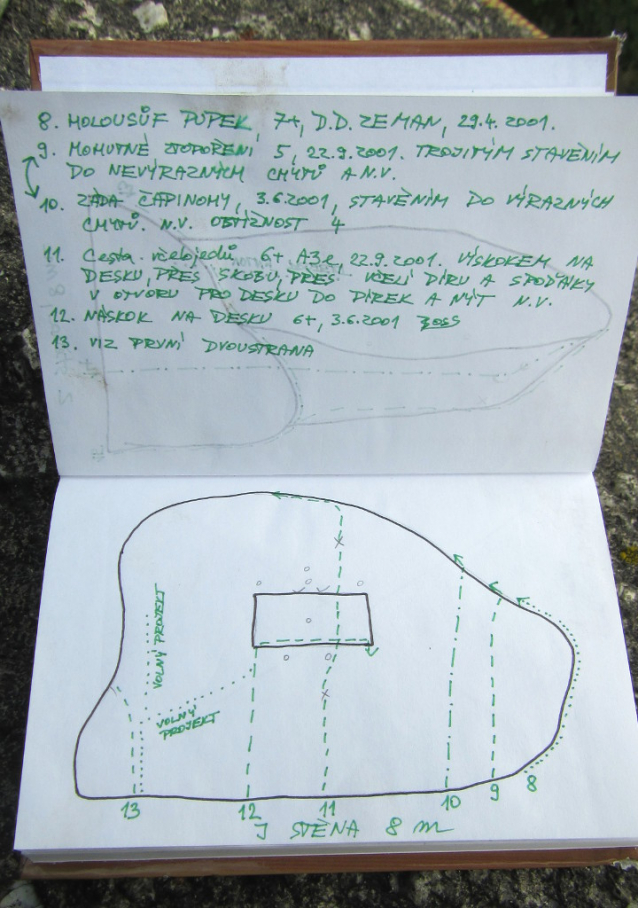 8. HOLOUSŮF PUPEK, 7+, D.D. ZEMAN, 29.4.2001.
9. MOHUTNÉ ZTOPOŘENÍ 5, 22.9.2001. TROJITÝM STAVĚNÍM
DO NEVÝRAZNÝCH CHYTŮ A N.V.
10. ZÁDA ČAPINOHY, 3.6.2001, STAVĚNÍM DO VÝRAZNÝCH
CHYTŮ. N.V. OBTÍŽNOST 4
11. Cesta včelojedů 6+ A3e, 22.9.2001. VÝSKOKEM NA
DESKU, PŘES SKOBU, PŘES VČELÍ DÍRU A SPODŇÁKY
V OTVORU PRO DESKU DO DÍREK A NÝT N.V.
12. NÁSKOK NA DESKU 6+, 3.6.2001
13. VIZ PRVNÍ DVOUSTRANA
VOLNÝ PROJEKT
VOLNÝ
PROJEKT
13 12 11 10 9 8
J STĚNA 8 m